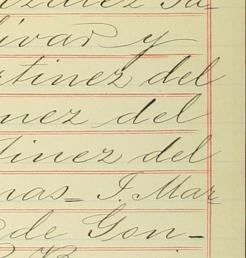 livar y
tinez del
nez del
tinez del
nas - I. Mar
de Gon-